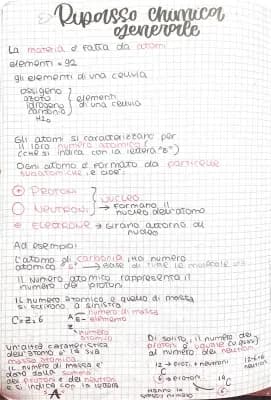 Ripasso chimica
generale
La materia è fatta da atomi
elementi = 92
gli elementi di una cellula
ossigeno
azoto
idrogeno
carbonio
H₂O
elementi
di una cellula
Gli atomi si caratterizzano per
il loro numero atomico
(che si indica con la lettera "Z")
Ogni atomo è formato da particelle
subatomiche, e cioè:
+ PROTONI
NEUTRONI
NUCLEO
→ Formano il
nucleo dell'atomo
ELETTRONE → Girano attorno al
nucleo
Ad esempio:
L'atomo di carbonio, ha numero
atomico "6" → base di tutte le molecole
Il Numero atomico rappresenta il
numero dei protoni.
Il numero atomico e quello di massa
si scrivono a sinistra
C = Z = 6
A = numero di massa
elemento
Z
numero
atomico
Un'altra caratteristica
dell'atomo è la sua
massa atomica
Il numero di massa è
dato dalla somma
dei protoni e dei neutroni
e si indica con la lettera
"A"
Di solito, il numero dei
protoni è uguale (o quasi)
al numero dei neutroni
12 → prot. + neutroni
6 → protoni
C
12-6=6
neutroni
Hanno lo
stesso numero